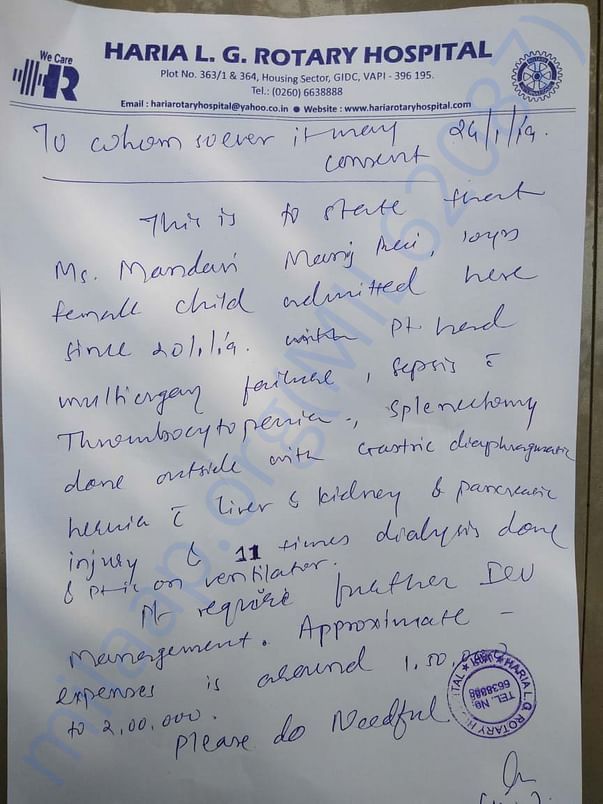 We Care
HR
HARIA L. G. ROTARY HOSPITAL
Plot No. 363/1 & 364, Housing Sector, GIDC, VAPI - 396 195.
Tel.: (0260) 6638888
Email : hariarotaryhospital@yahoo.co.in ● Website : www.hariarotaryhospital.com
To whom soever it may 24/1/19.
consent
This is to state that
Ms. Mandavi Manoj Rai, 10yrs
female child admitted here
since 20/1/19. with pt head
multiorgan failure, sepsis c̄
Thrombocytopenia, Splenectomy
done outside with Gastric diaphragmatic
hernia c̄ liver & kidney & pancreatic
injury & 11 times dialysis done
& pt is on ventilator.
Pt require further ICU
Management. Approximate -
expenses is around 1,50,000
to 2,00,000.
Please do Needful
HARIA L.G. ROTARY HOSPITAL
TEL. No.
6638888
milaap.org(MIL62087)